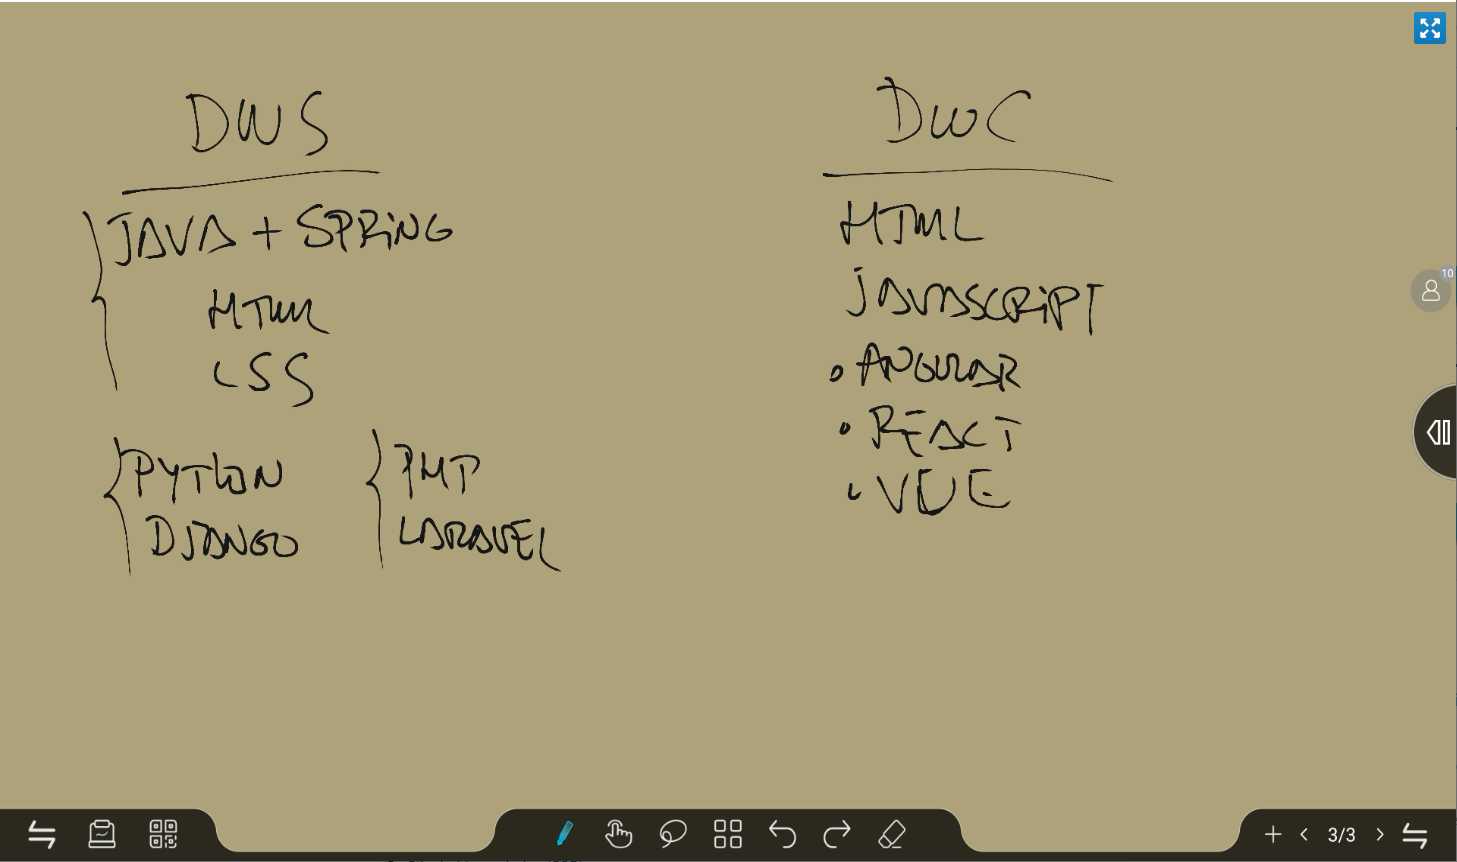 DWS
JAVA + SPRiNG
HTML
CSS
PYTHON
DJANGO
PHP
LARAVEL
DWC
HTML
JAVASCRiPT
• ANGULAR
• REACT
• VUE
10
3/3